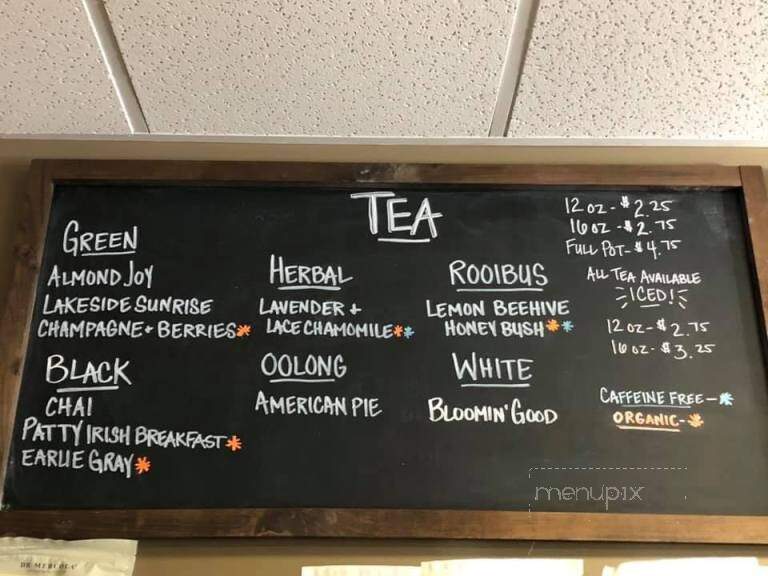 TEA
12 oz - $2.25
16 oz - $2.75
FULL POT - $4.75
ALL TEA AVAILABLE
ICED!
12 oz - $2.75
16 oz - $3.25
CAFFEINE FREE - *
ORGANIC - *
GREEN
ALMOND JOY
LAKESIDE SUNRISE
CHAMPAGNE + BERRIES*
HERBAL
LAVENDER +
LACE CHAMOMILE**
ROOIBUS
LEMON BEEHIVE
HONEY BUSH**
BLACK
CHAI
PATTY IRISH BREAKFAST*
EARLIE GRAY*
OOLONG
AMERICAN PIE
WHITE
BLOOMIN' GOOD
menupix
DR. MERCOLA